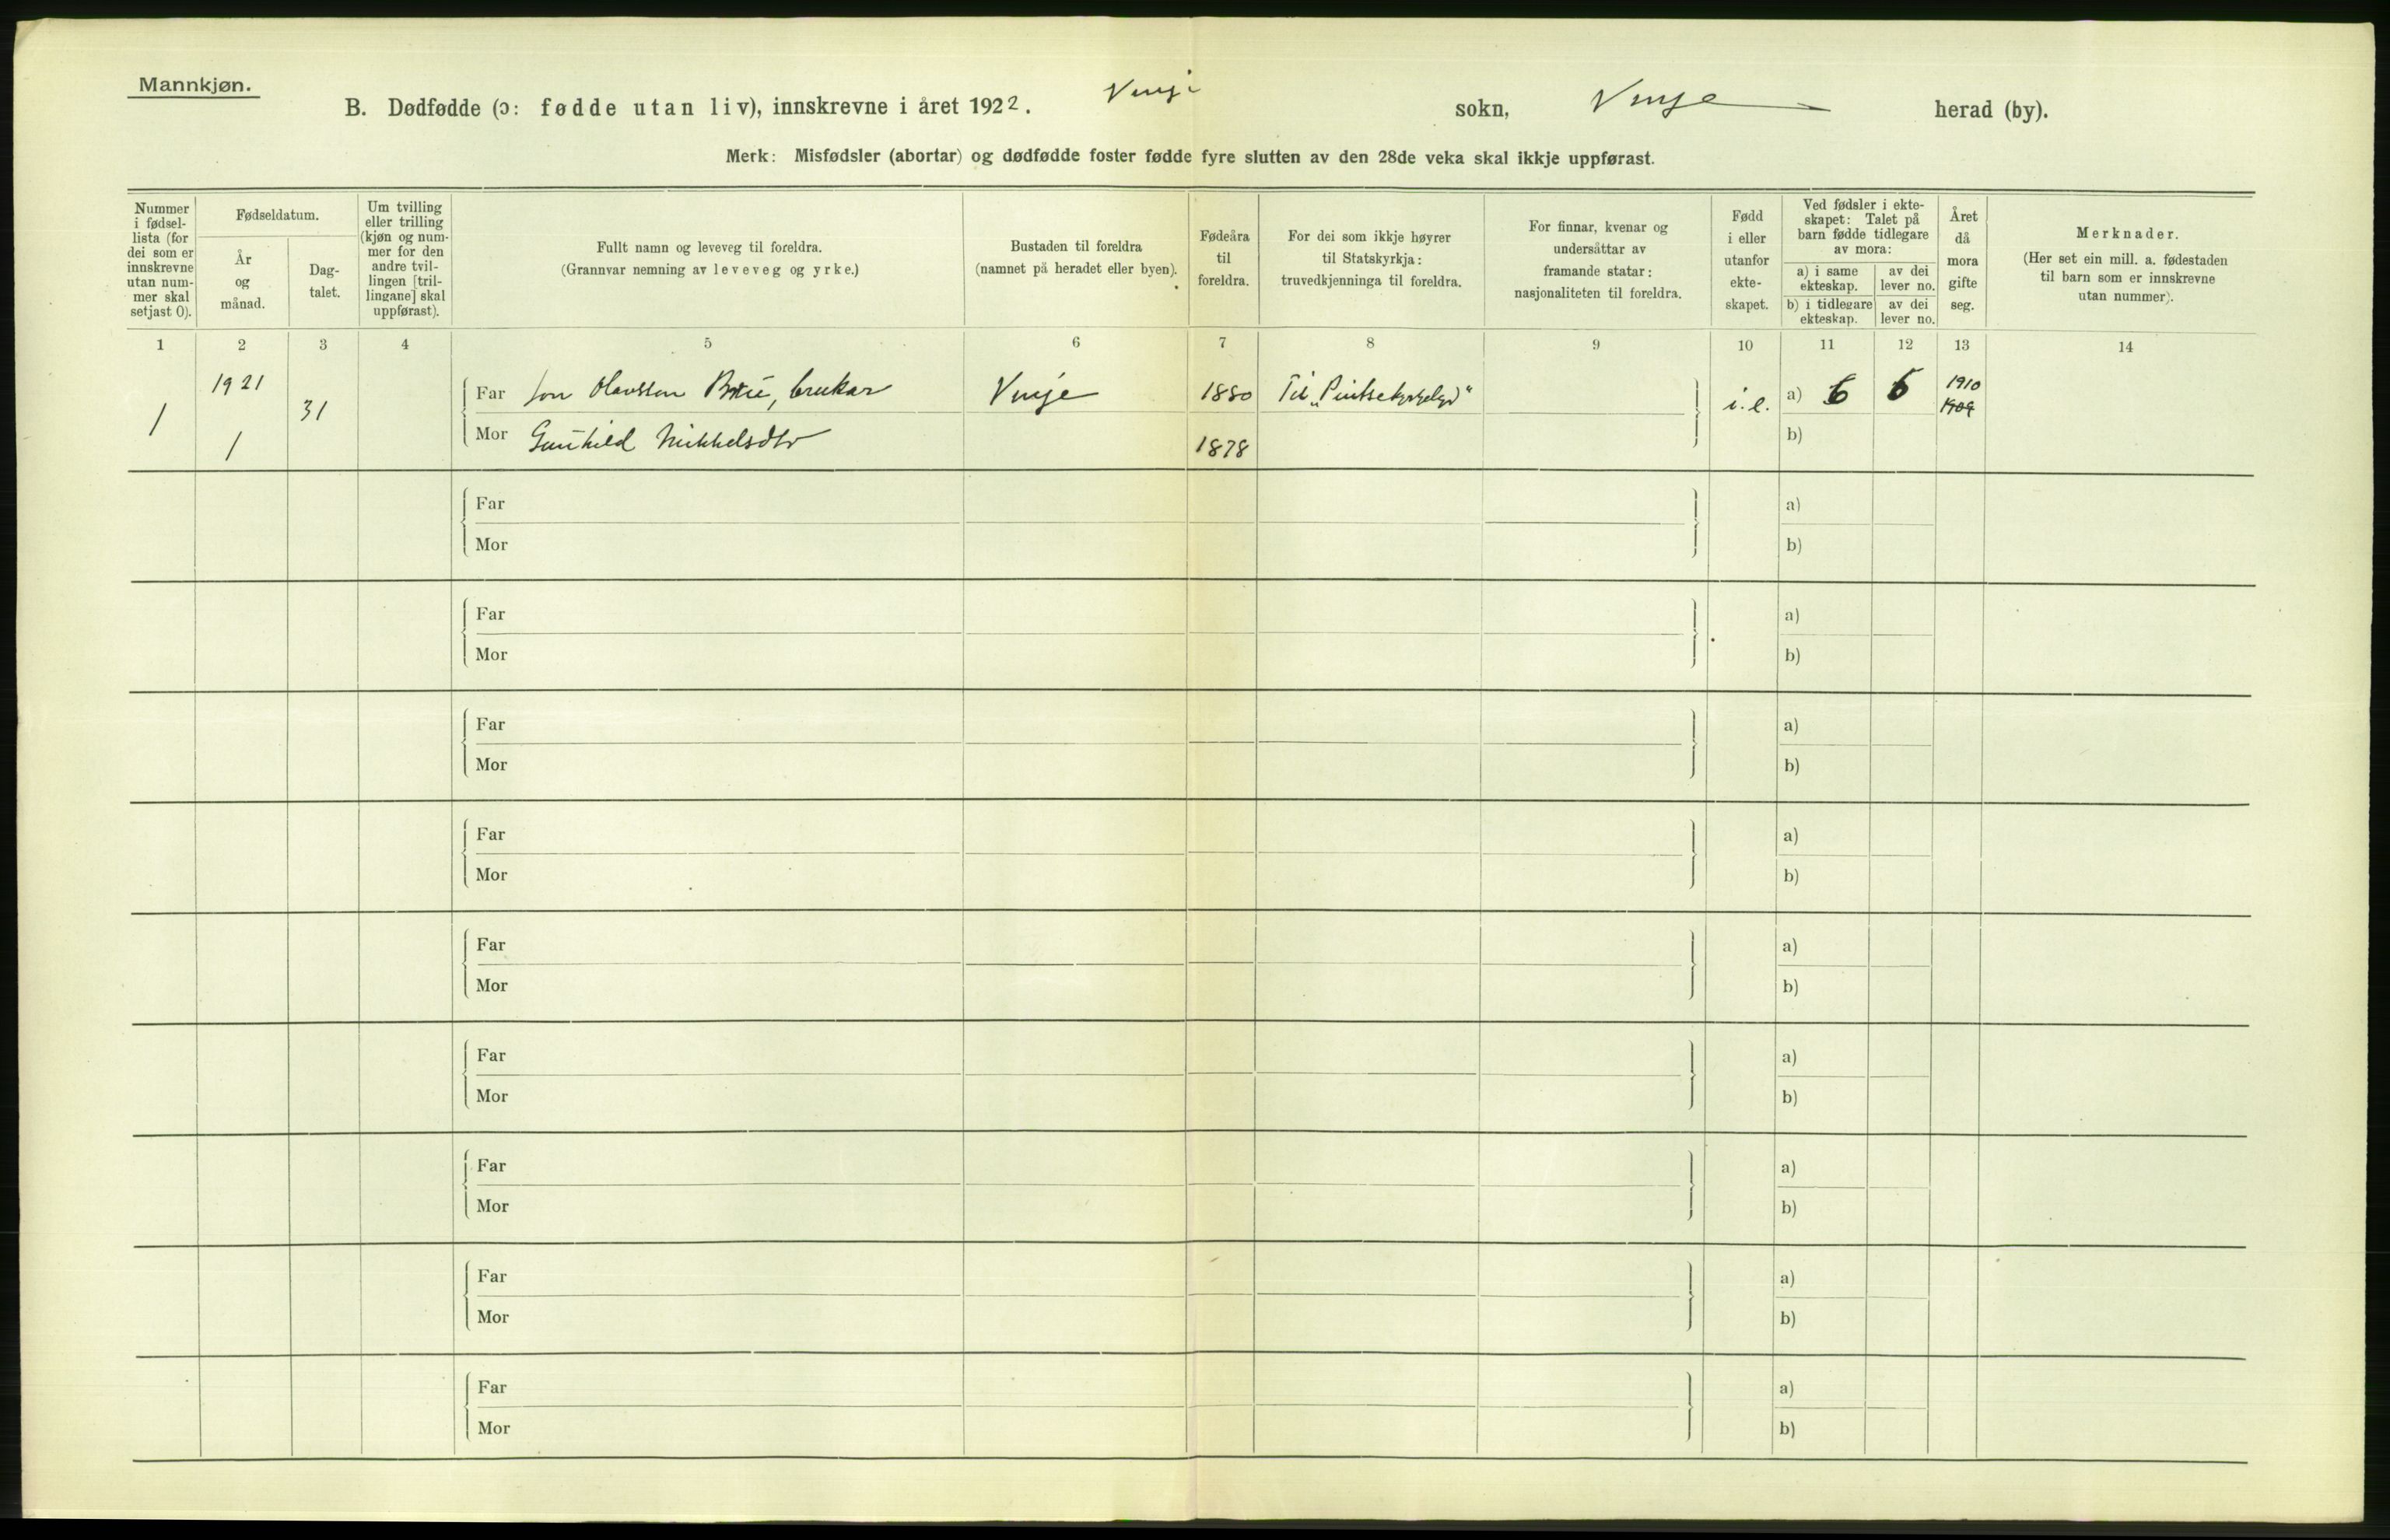 Mannkjøn.
B. Dødfødde (ɔ: fødde utan liv), innskrevne i året 1922. Vinje sokn, Vinje herad (by).
Merk: Misfødsler (abortar) og dødfødde foster fødde fyre slutten av den 28de veka skal ikkje uppførast.
Nummer i fødsel-lista (for dei som er innskrevne utan num-mer skal setjast 0).
Fødseldatum.
År og månad.
Dag-talet.
Um tvilling eller trilling (kjøn og num-mer for den andre tvil-lingen [tril-lingane] skal uppførast).
Fullt namn og leveveg til foreldra.
(Grannvar nemning av leveveg og yrke.)
Bustaden til foreldra
(namnet på heradet eller byen).
Fødeåra til foreldra.
For dei som ikkje høyrer til Statskyrkja: truvedkjenninga til foreldra.
For finnar, kvenar og undersåttar av framande statar: nasjonaliteten til foreldra.
Fødd i eller utanfor ekte-skapet.
Ved fødsler i ekte-skapet: Talet på barn fødde tidlegare av mora:
a) i same ekteskap.
av dei lever no.
b) i tidlegare ekteskap.
av dei lever no.
Året då mora gifte seg.
Merknader.
(Her set ein mill. a. fødestaden til barn som er innskrevne utan nummer).
1 2 3 4 5 6 7 8 9 10 11 12 13 14
1 1921 1 31
Far Jon Olavsson brukar Vinje 1880 Til i.e. a) 6 1910
1909
Mor Gunhild Mikkelsdtr 1878 b)
Far a)
Mor b)
Far a)
Mor b)
Far a)
Mor b)
Far a)
Mor b)
Far a)
Mor b)
Far a)
Mor b)
Far a)
Mor b)
Far a)
Mor b)
Far a)
Mor b)